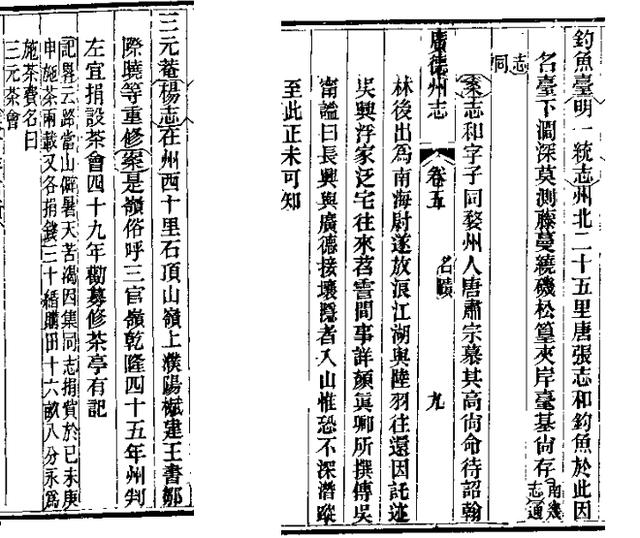 釣魚臺明一統志州北二十五里唐張志和釣魚於此因
名臺下澗深莫測藤蔓繞磯松篁夾岸臺基尚存南畿志通
志同
案志和字子同婺州人唐肅宗慕其高尚命待詔翰
廣德州志 卷五 名蹟 九
林後出為南海尉遂放浪江湖與陸羽往還因託迹
吳興浮家泛宅往來苕霅間事詳顏真卿所撰傳吳
甯謐曰長興與廣德接壤隱者入山惟恐不深潛蹤
至此正未可知
三元菴楊志在州西十里石頂山嶺上濮陽棐建王書鄒
際曉等重修案是嶺俗呼三官嶺乾隆四十五年州判
左宜捐設茶會四十九年勸募修茶亭有記
記畧云路當山僻暑天苦渴因集同志捐貲於己未庚
申施茶兩載又各捐錢三十緡購田十六畝八分永為
施茶費名曰
三元茶會